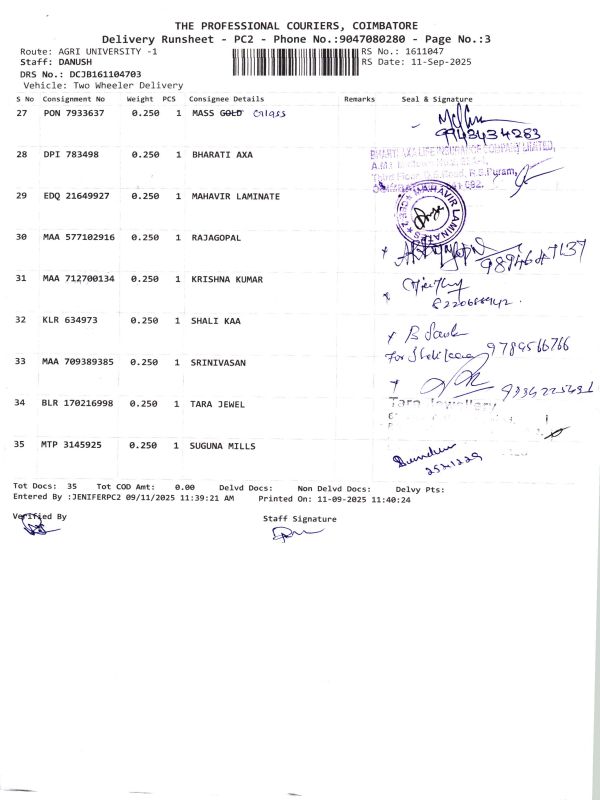 THE PROFESSIONAL COURIERS, COIMBATORE
Delivery Runsheet - PC2 - Phone No.:9047080280 - Page No.:3
Route: AGRI UNIVERSITY -1 RS No.: 1611047
Staff: DANUSH RS Date: 11-Sep-2025
DRS No.: DCJB161104703
Vehicle: Two Wheeler Delivery
S No Consignment No Weight PCS Consignee Details Remarks Seal & Signature
27 PON 7933637 0.250 1 MASS GOLD Glass
9943434263
28 DPI 783498 0.250 1 BHARATI AXA
BHARTI AXA LIFE INSURANCE COMPANY LIMITED,
Third Floor, D.B.Road, R.S.Puram,
29 EDQ 21649927 0.250 1 MAHAVIR LAMINATE
MAHAVIR LAMINATES
30 MAA 577102916 0.250 1 RAJAGOPAL
31 MAA 712700134 0.250 1 KRISHNA KUMAR
32 KLR 634973 0.250 1 SHALI KAA
For 9789566766
33 MAA 709389385 0.250 1 SRINIVASAN
34 BLR 170216998 0.250 1 TARA JEWEL
Tara Jewellery
35 MTP 3145925 0.250 1 SUGUNA MILLS
2541229
Tot Docs: 35 Tot COD Amt: 0.00 Delvd Docs: Non Delvd Docs: Delvy Pts:
Entered By :JENIFERPC2 09/11/2025 11:39:21 AM Printed On: 11-09-2025 11:40:24
Verified By
Staff Signature